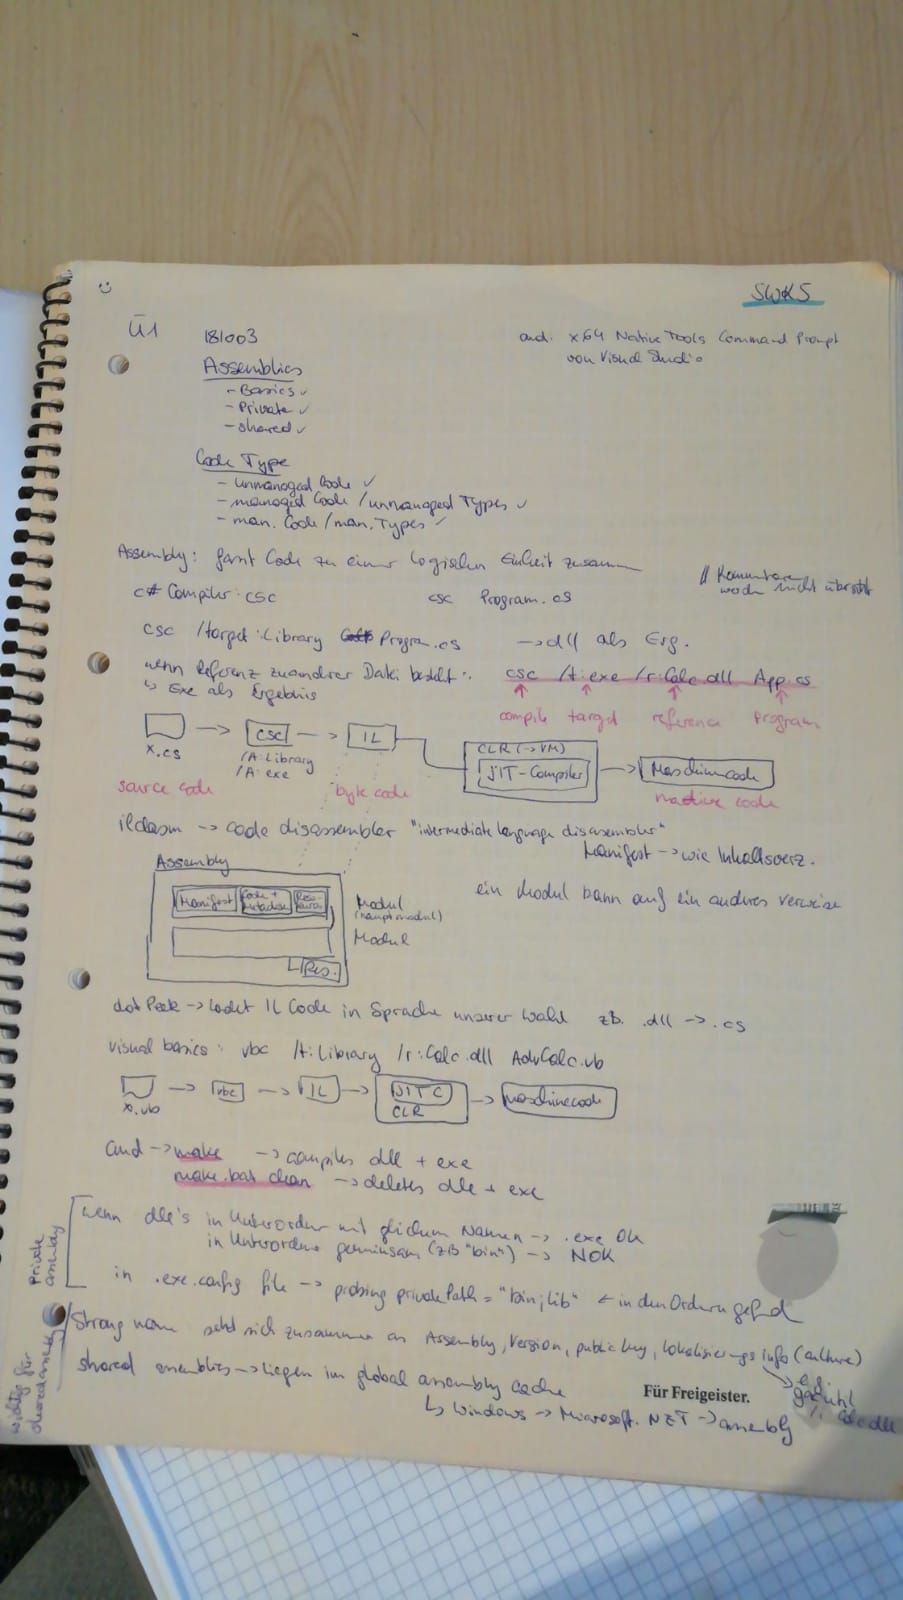 SWK5
Ü1 181003
cmd: x64 Native Tools Command Prompt
von Visual Studio
Assemblies
- Basics ✓
- Private ✓
- shared ✓
Code Type
- unmanaged Code ✓
- managed Code / unmanaged Types ✓
- man. Code / man. Types ✓
Assembly: fasst Code zu einer logischen Einheit zusammen
// Kommentare
werden nicht übersetzt
C# Compiler: csc csc Program.cs
csc /target:Library Program.cs → dll als Erg.
wenn Referenz zu anderer Datei besteht: csc /t:exe /r:Calc.dll App.cs
↳ Exe als Ergebnis
compile target reference Program
x.cs → csc → IL
/A:Library
/A:exe
CLR (→VM)
JIT-Compiler → Maschinencode
source code byte code machine code
ildasm → code disassembler "intermediate language disassembler"
Manifest → wie Inhaltsverz.
Assembly
Manifest Code + Metadaten
Modul
(Hauptmodul)
Modul
Res.
ein Modul kann auf ein anderes verweisen
dotPeek → Code in Sprache unserer Wahl zB. .dll → .cs
visual basics: vbc /t:Library /r:Calc.dll AdvCalc.vb
x.vb → vbc → IL → JITC → Maschinecode
CLR
cmd → make → compiles dll + exe
make.bat clean → deletes dll + exe
Private
assembly
wenn dll's in Unterordner mit gleichem Namen → .exe OK
in Unterordner gemeinsam (zB "bin") → NOK
in .exe.config file → probing privatePath = "bin;lib" ← in den Ordnern
wichtig für
Strong name setzt sich zusammen an Assembly, Version, public key, Lokalisierungsinfo (culture)
shared assemblies → liegen im global assembly cache
↳ Windows → Microsoft.NET → assembly
Für Freigeister.